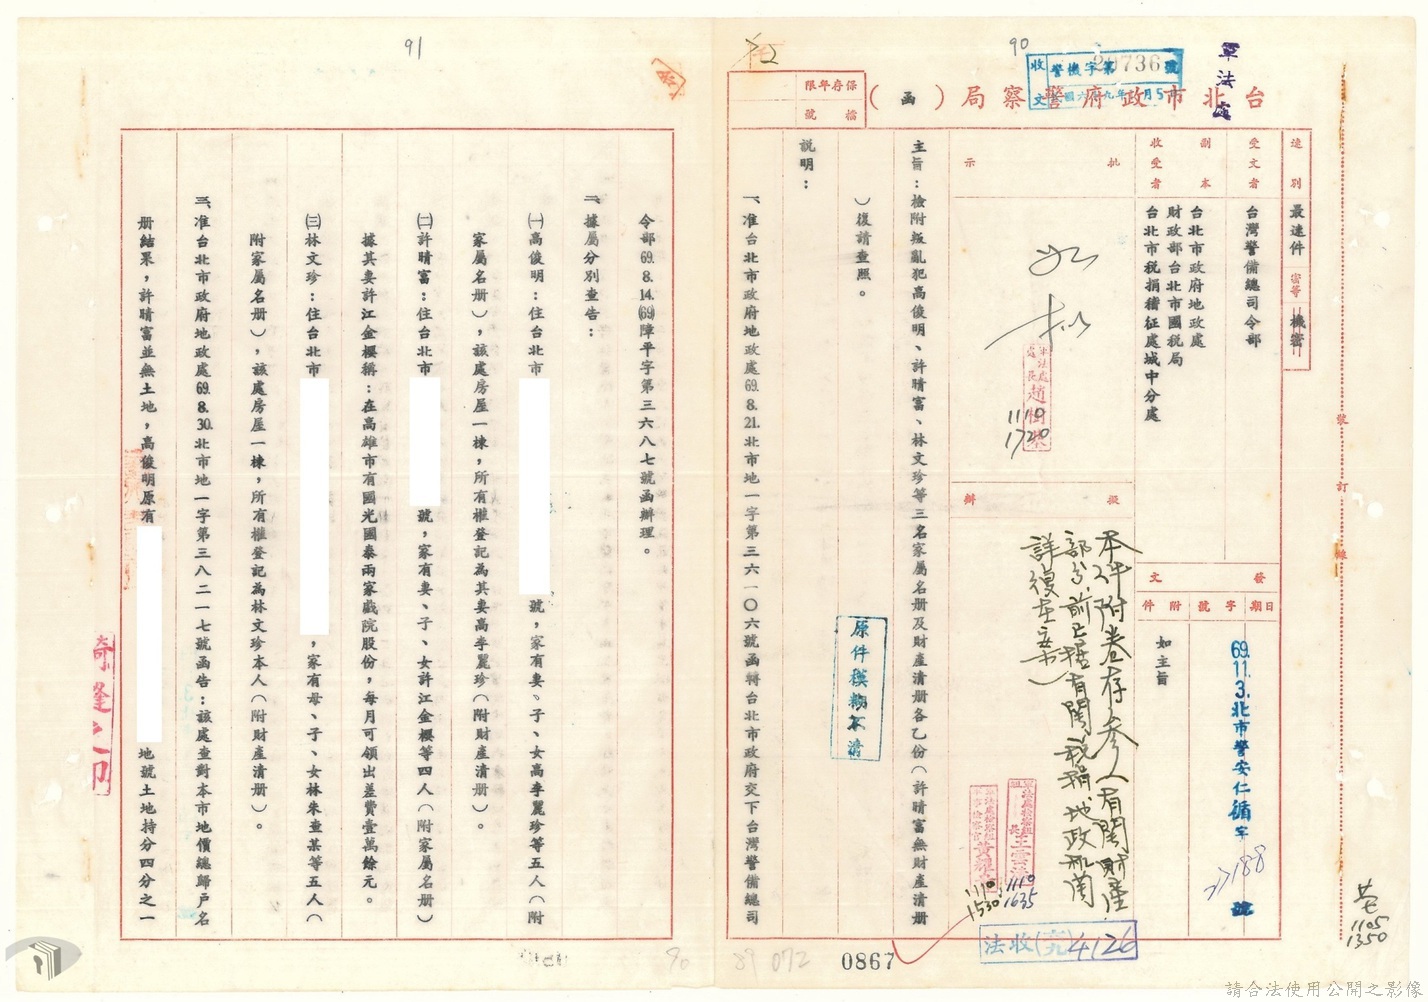 90
軍法處
收文
警機字第20736號
台北市政府警察局（函）
保存年限
檔號
速別
最速件
密等
機密
受文者
台灣警備總司令部
副本收受者
台北市政府地政處
財政部台北市國稅局
台北市稅捐稽征處城中分處
批示
如擬
軍法處處長
1110
1720
發文
日期
字號
附件
69.11.3.北市警安仁循字
188
號
如主旨
擬辦
本件附卷存參（有關財產
部分，前已據有關稅捐地政機關
詳復在案）
1110
1635
1110
1530
法收(六九)4126
主旨：檢附叛亂犯高俊明、許晴富、林文珍等三名家屬名册及財產清册各乙份（許晴富無財產清册
）復請查照。
原件模糊不清
說明：
一、准台北市政府地政處69.8.21.北市地一字第三六一〇六號函轉台北市政府交下台灣警備總司
裝
訂
線
1105
1350
0867
89
072
91
令部69.8.14.(69)障平字第三六八七號函辦理。
二、據屬分別查告：
㈠高俊明：住台北市
號，家有妻、子、女高李麗珍等五人（附
家屬名册），該處房屋一棟，所有權登記為其妻高李麗珍（附財產清册）。
㈡許晴富：住台北市
號，家有妻、子、女許江金櫻等四人（附家屬名册）
據其妻許江金櫻稱：在高雄市有國光國泰兩家戲院股份，每月可領出差費壹萬餘元。
㈢林文珍：住台北市
，家有母、子、女林朱查某等五人（
附家屬名册），該處房屋一棟，所有權登記為林文珍本人（附財產清册）。
三、准台北市政府地政處69.8.30.北市地一字第三八二一七號函告：該處查對本市地價總歸戶名
册結果，許晴富並無土地，高俊明原有
地號土地持分四分之一
騎縫之印
90
請合法使用公開之影像